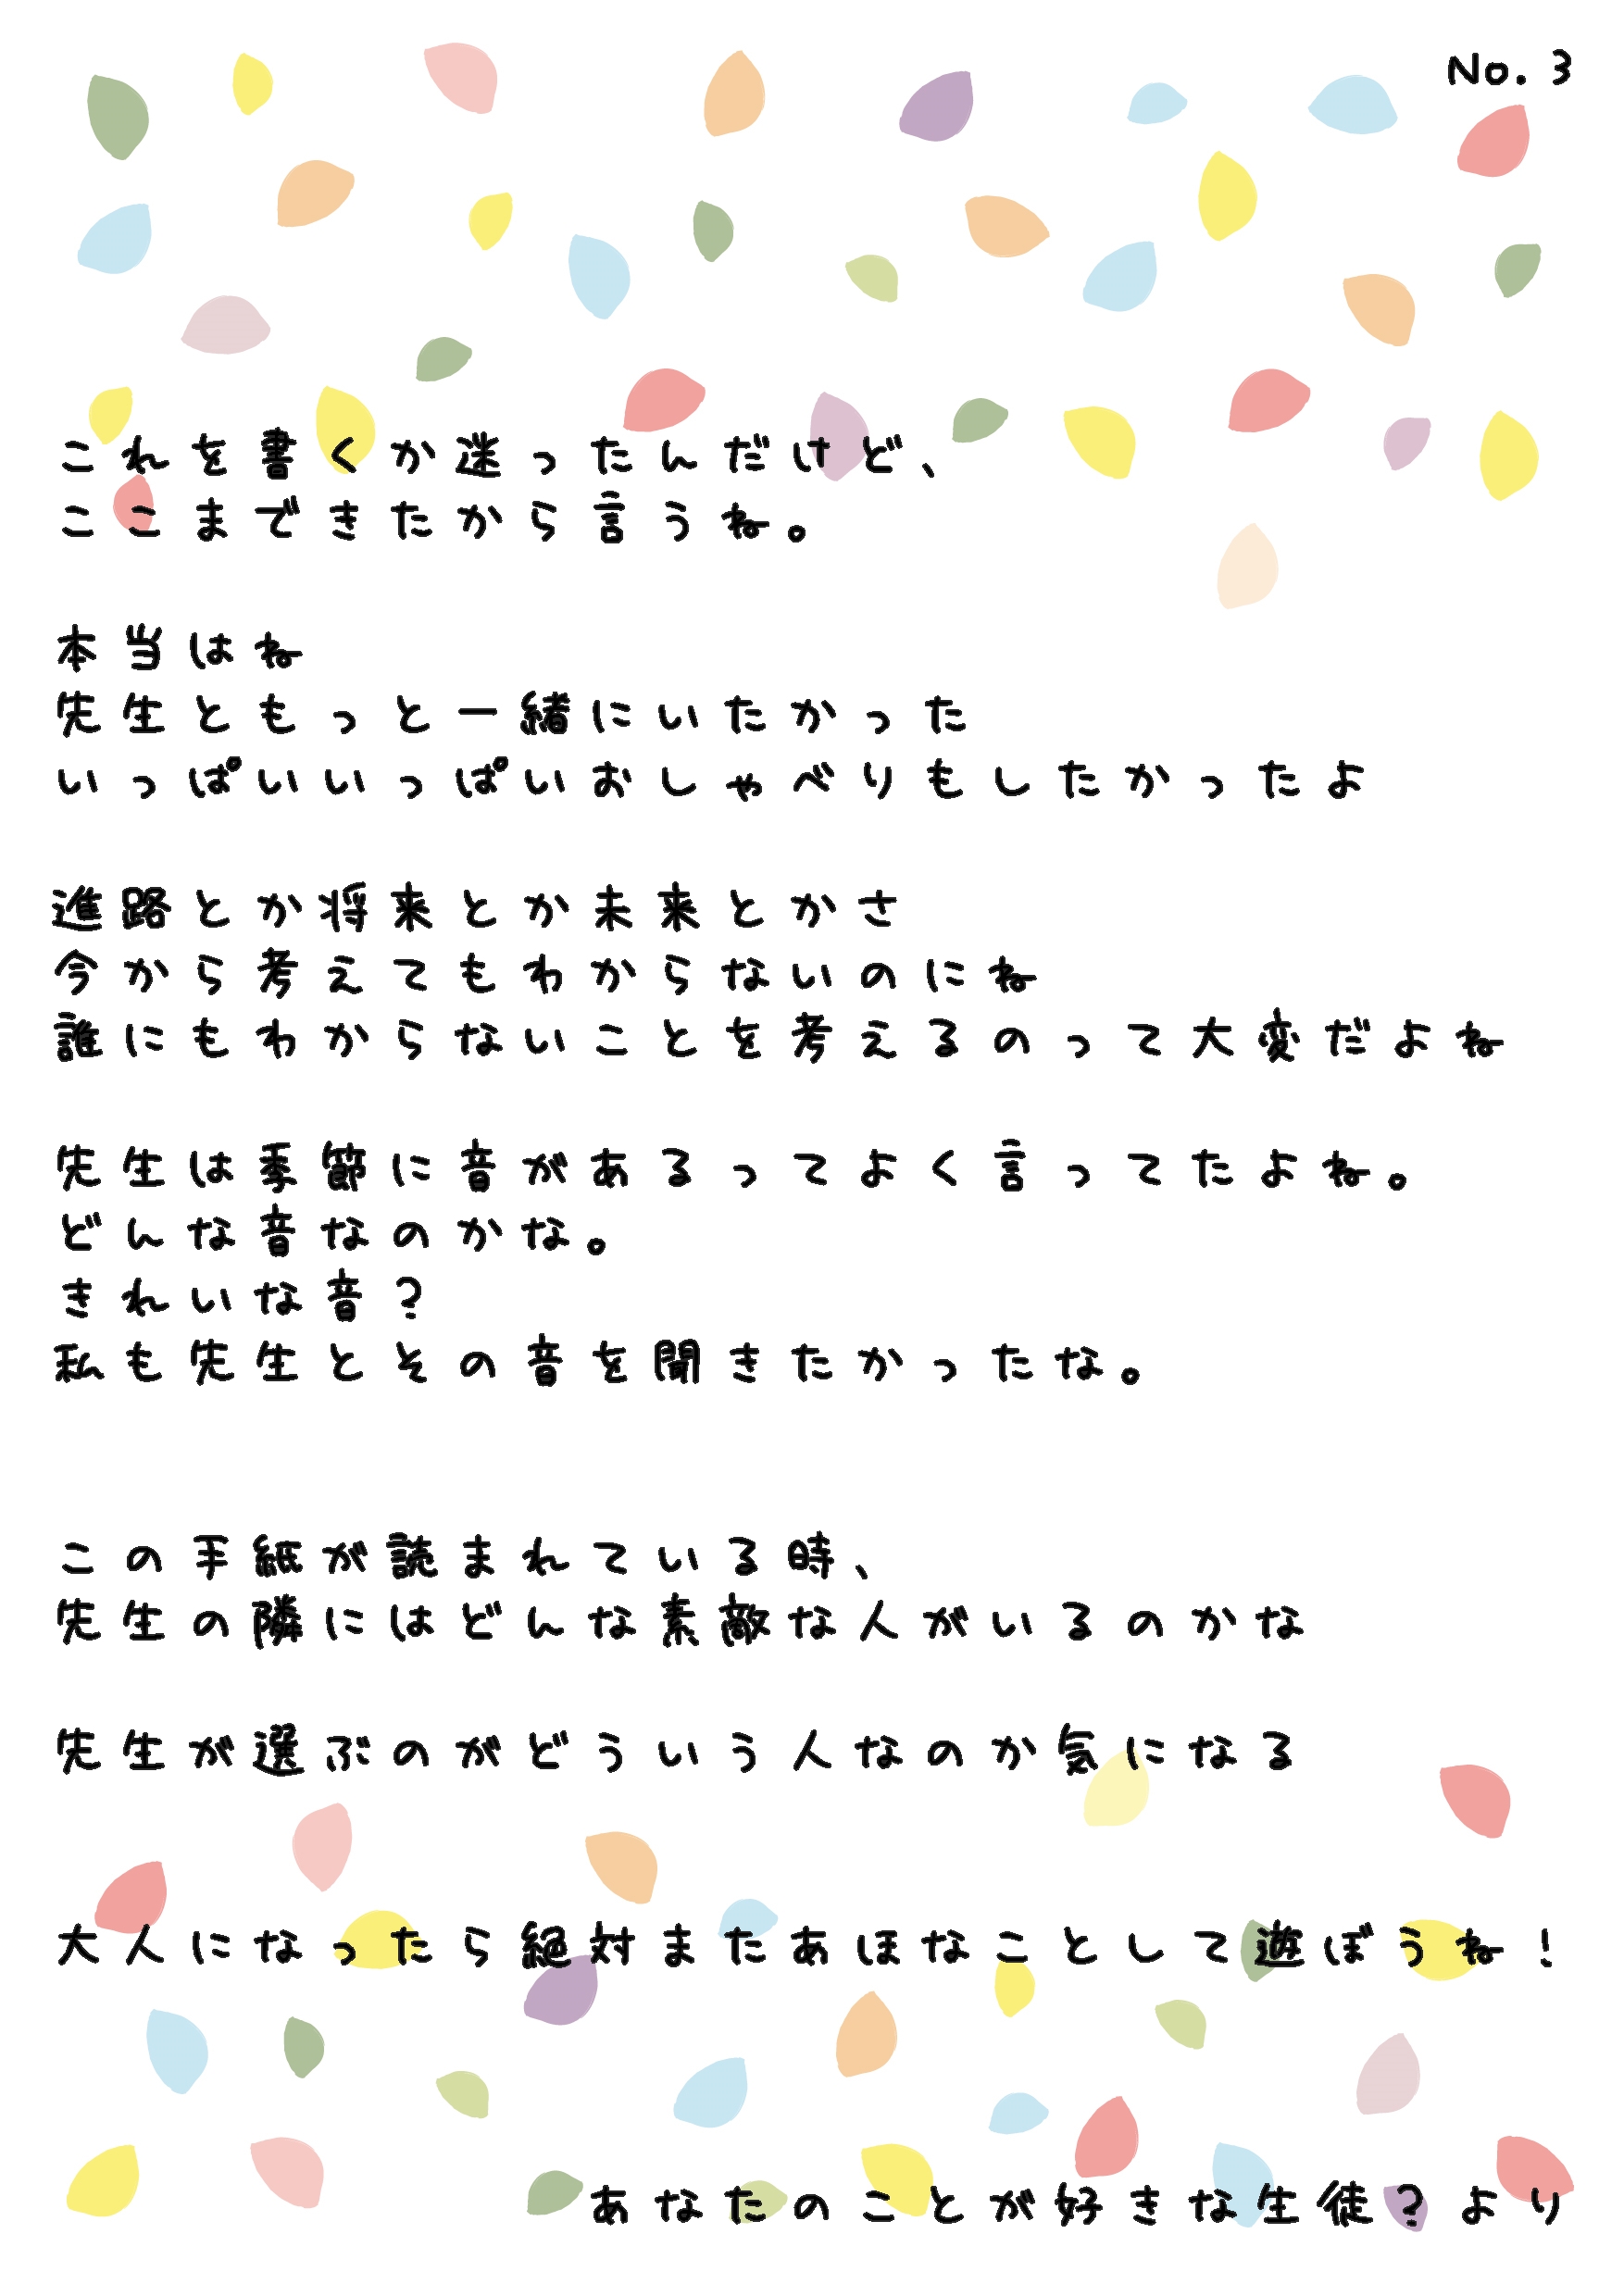 No. 3
これを書くか迷ったんだけど、
ここまできたから言うね。
本当はね
先生ともっと一緒にいたかった
いっぱいいっぱいおしゃべりもしたかったよ
進路とか将来とか未来とかさ
今から考えてもわからないのにね
誰にもわからないことを考えるのって大変だよね
先生は季節に音があるってよく言ってたよね。
どんな音なのかな。
きれいな音?
私も先生とその音を聞きたかったな。
この手紙が読まれている時、
先生の隣にはどんな素敵な人がいるのかな
先生が選ぶのがどういう人なのか気になる
大人になったら絶対またあほなことして遊ぼうね!
あなたのことが好きな生徒?より